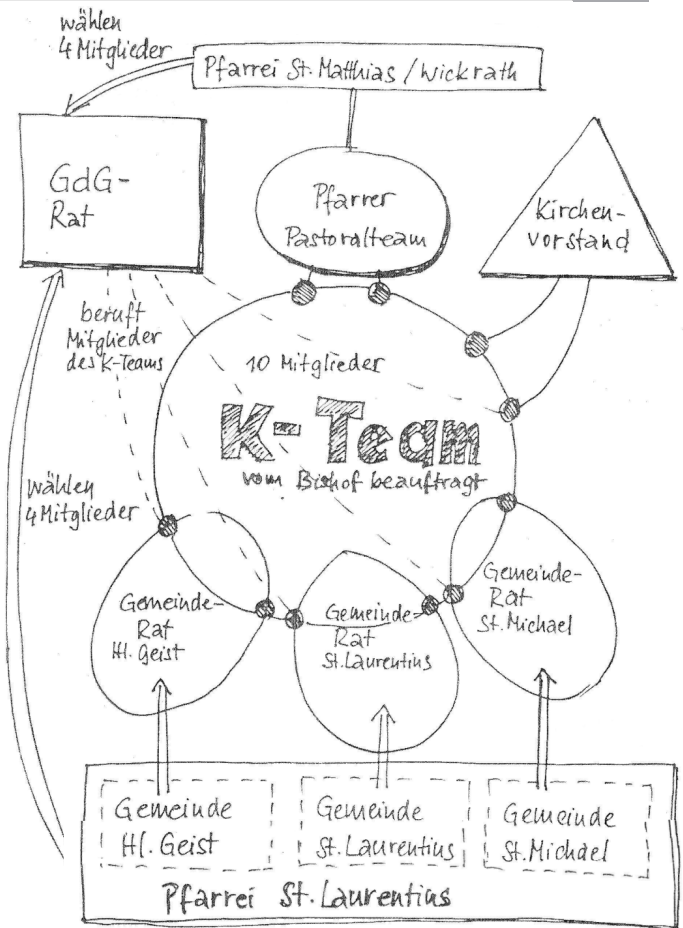 wählen
4 Mitglieder
Pfarrei St. Matthias / Wickrath
GdG-
Rat
Pfarrer
Pastoralteam
Kirchen-
vorstand
beruft
Mitglieder
des K-Teams
10 Mitglieder
K-Team
vom Bischof beauftragt
wählen
4 Mitglieder
Gemeinde-
Rat
Hl. Geist
Gemeinde-
Rat
St. Laurentius
Gemeinde-
Rat
St. Michael
Gemeinde
Hl. Geist
Gemeinde
St. Laurentius
Gemeinde
St. Michael
Pfarrei St. Laurentius